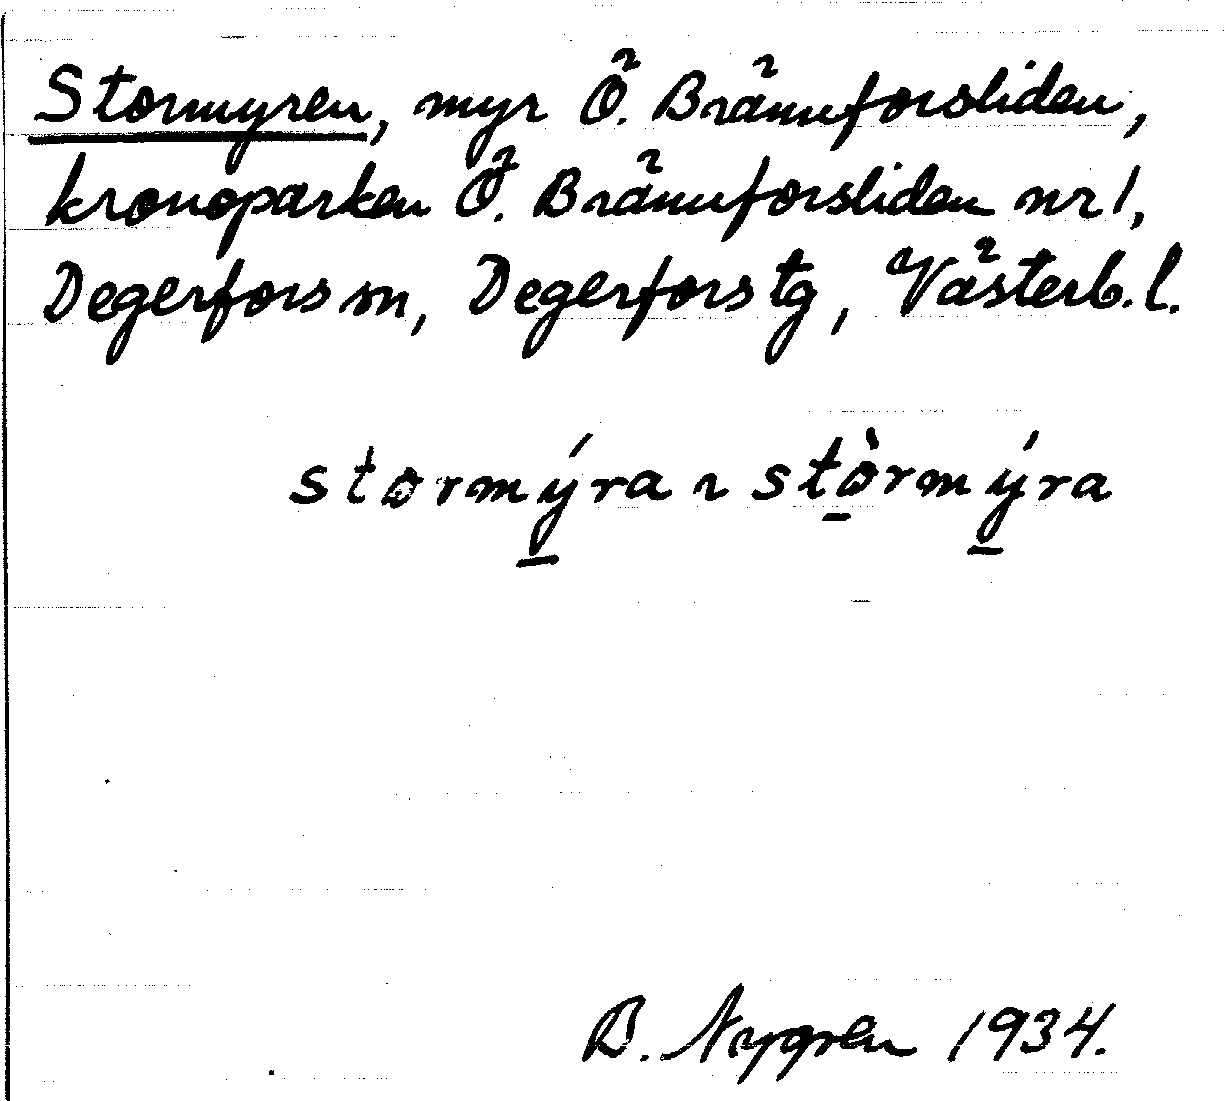 Stormyren, myr Ö. Brännforsliden,
kronoparken Ö. Brännforsliden nr 1,
Degerfors sn, Degerfors tg, Västerb. l.
stormýra ~ stòrmýra
B. Nygren 1934.